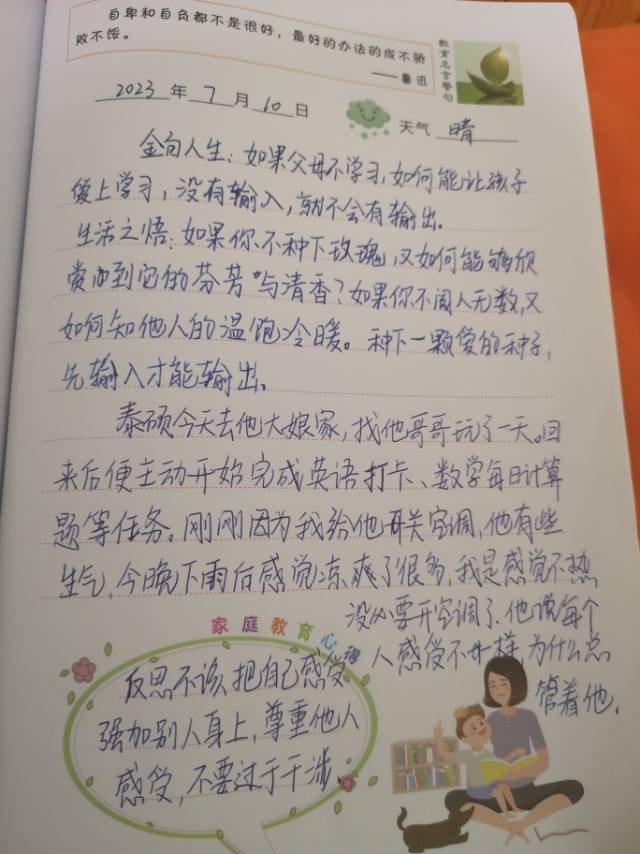 自卑和自负都不是很好，最好的办法的成不骄
败不馁。
——鲁迅
教育名言警句
2023 年 7 月 10 日
天气 晴
金句人生：如果父母不学习，如何能让孩子
爱上学习，没有输入，就不会有输出。
生活之悟：如果你不种下玫瑰，又如何能够欣
赏到它的芬芳与清香？如果你不阅人无数，又
如何知他人的温饱冷暖。种下一颗爱的种子，
先输入才能输出。
泰硕今天去他大娘家，找他哥哥玩了一天。回
来后便主动开始完成英语打卡、数学每日计算
题等任务。刚刚因为我给他关空调，他有些
生气，今晚下雨后感觉凉爽了很多，我是感觉不热
没必要开空调了。他说每个
人感受不一样，为什么总
管着他。
家庭教育心得
反思不该把自己感受
强加别人身上，尊重他人
感受，不要过于干涉。